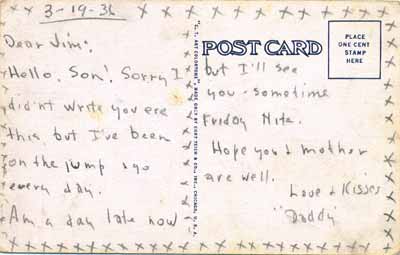 3-19-36
Dear Jim:
Hello, Son! Sorry I
did'nt write you ere
this but I've been
on the jump
every day.
Am a day late now
"C.T. ART-COLORTONE" MADE ONLY BY CURT TEICH & CO., INC., CHICAGO, U.S.A.
POST CARD
PLACE
ONE CENT
STAMP
HERE
but I'll see
you sometime
Friday Nite.
Hope you & mother
are well.
Love & Kisses
"Daddy"